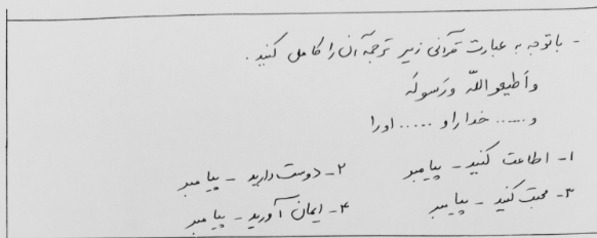 - با توجه به عبارت قرآنی زیر ترجمه آن را کامل کنید.
واَطیعو اللّه ورَسولَه
و ...... خدا را و ...... او را
۱- اطاعت کنید - پیامبر ۲- دوست دارید - پیامبر
۳- محبت کنید - پیامبر ۴- ایمان آورید - پیامبر